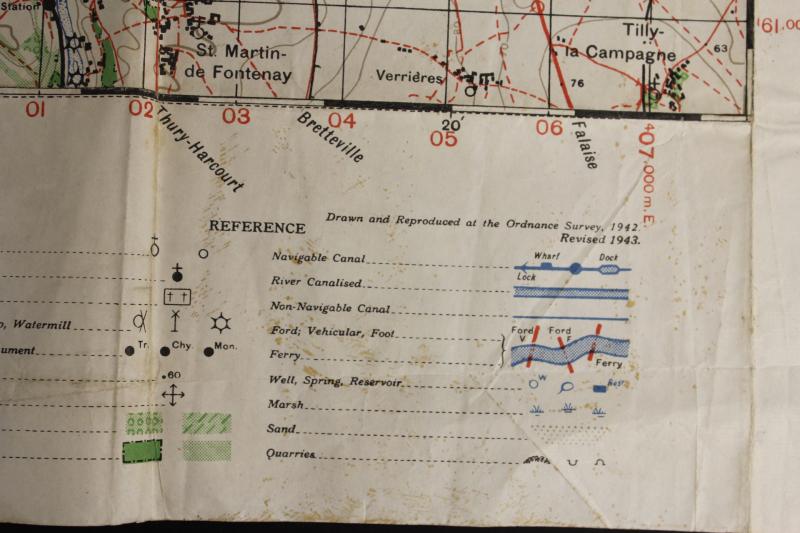 Station
St. Martin-
de Fontenay
Verrières
Tilly-
la Campagne
63
76
01
02
03
04
05
20'
06
407,000 m.E.
Thury-Harcourt
Bretteville
Falaise
REFERENCE
Drawn and Reproduced at the Ordnance Survey, 1942.
Revised 1943.
Navigable Canal
Wharf
Dock
Lock
River Canalised
Non-Navigable Canal
Watermill
Ford; Vehicular, Foot
Ford
V
Ford
F
Tr.
Chy.
Mon.
Ferry
Ferry
.60
Well, Spring, Reservoir
W
Resr.
Marsh
Sand
Quarries